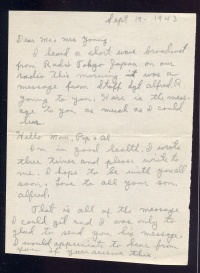 Sept 19 - 1943
Dear Mr. Mrs Young.
I heard a short wave broadcast
from Radio Tokyo Japan, on our
radio this morning it was a
message from Staff Sgt alfred R
Young to you. Here is the mess-
age to you as much as I could
hear.
Hello Mom, Pop & al
Im in good health. I wrote
three times and please write to
me. I hope to be with you all
soon. Love to all your son,
alfred.
That is all of the message
I could get and I was only to
glad to send you his message.
I would appreciate to hear from
you if you receive this